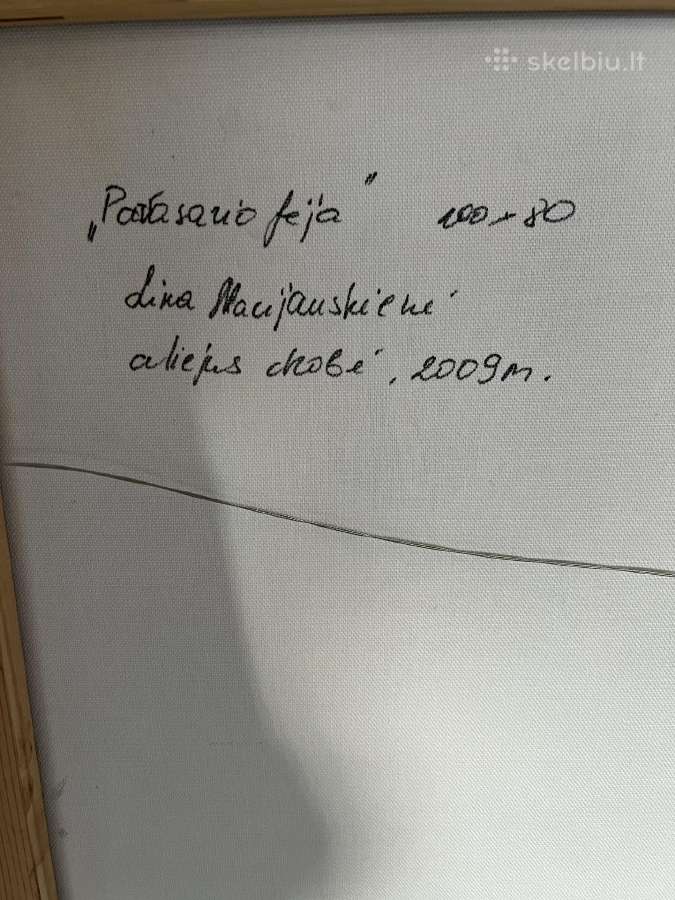 skelbiu.lt
„Pavasario fėja" 100 x 80
Lina Macijauskienė
aliejus drobė, 2009m.